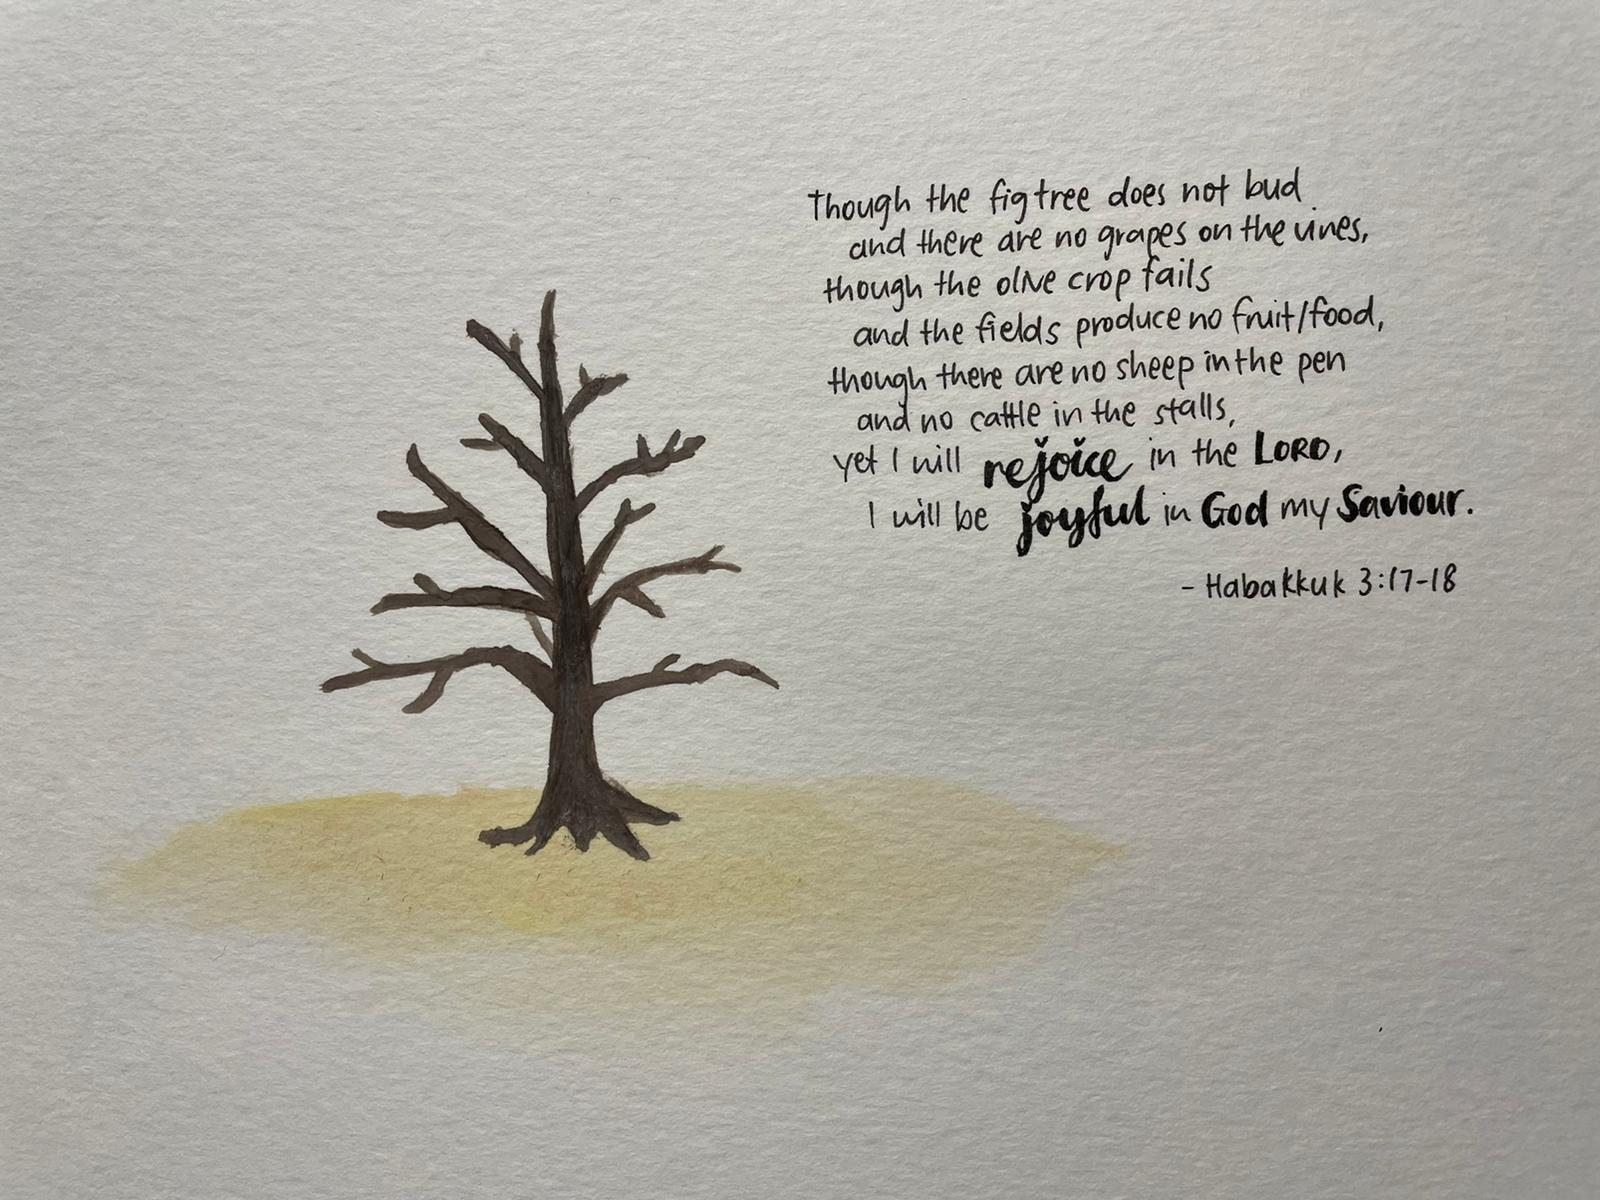 Though the fig tree does not bud
and there are no grapes on the vines,
though the olive crop fails
and the fields produce no fruit/food,
though there are no sheep in the pen
and no cattle in the stalls,
yet I will rejoice in the LORD,
I will be joyful in God my Saviour.
- Habakkuk 3:17-18